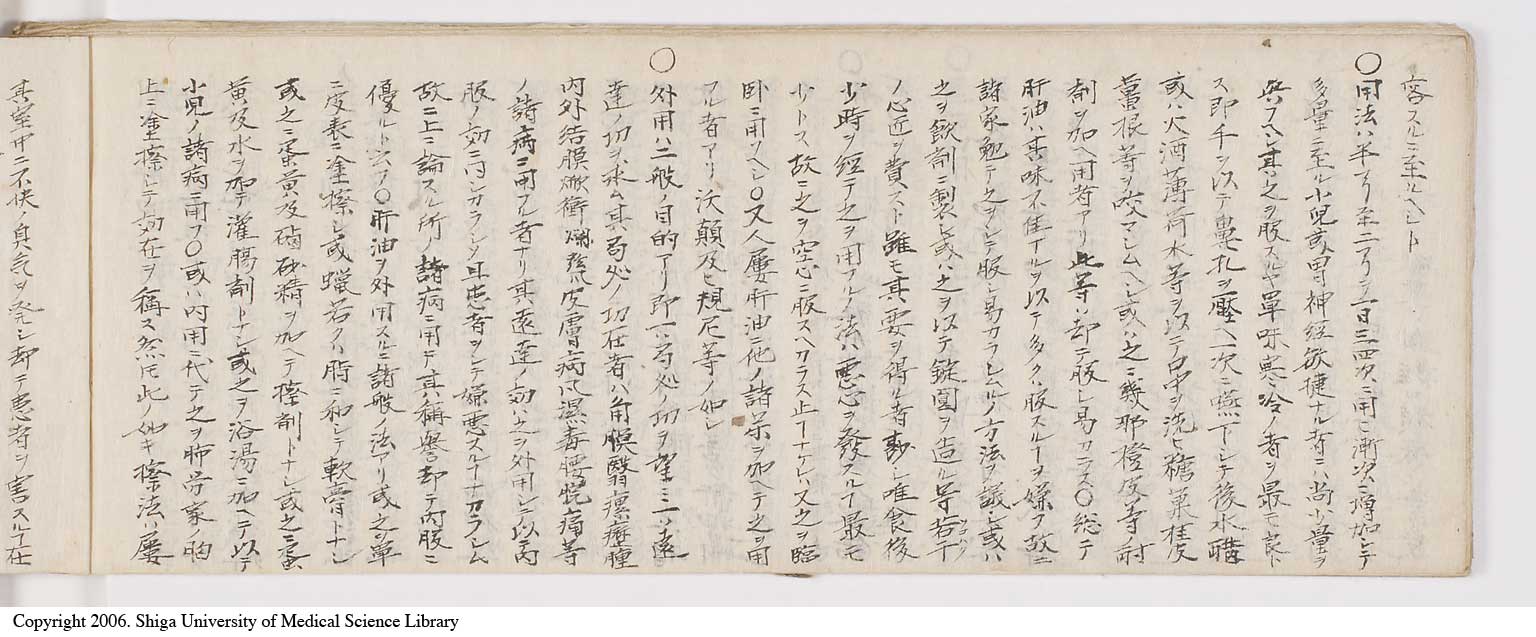 容スルニ至ルヘシト
〇用法ハ半ヲリ至二ヲリヲ一日三四次ニ用ヒ漸次ニ増加シテ
多量ニ至ル小児或胃神経敏捷ナル者ニハ尚少量ヲ
与フヘシ其之ヲ服スルヤ単味寒冷ノ者ヲ最モ良ト
ス即手ヲ以テ鼻孔ヲ壓ヘ一次ニ嚥下シテ後水醋
或ハ火酒薄荷水等ヲ以テ口中ヲ洗ヒ糖菓桂皮
菖根等ヲ咬マシムヘシ或ハ之ニ幾那橙皮等ノ酎
剤ヲ加ヘ用者アリ此等ハ却テ服シ易カラス〇総テ
肝油ハ其味不佳ナルヲ以テ多クハ服スルーヲ嫌フ故ニ
諸家勉テ之ヲシテ服シ易カラシムルノ方法ヲ議シ或ハ
之ヲ飲剤ニ製シ或ハ之ヲ以テ錠圓ヲ造ル等若干
ノ心近ヲ費ストモ雖モ其要ヲ得ル者尠シ唯食後
少時ヲ経テ之ヲ用フルノ法ハ悪心ヲ發スルー最モ
少トス故ニ之ヲ空心ニ服スヘカラス止ーナケレハ又之ヲ臨
卧ニ用ヘシ〇又人屢肝油ニ他ノ諸薬ヲ加ヘテ之ヲ用
フル者アリ沃顛及ヒ規尼等ノ如シ
〇外用ハ二般ノ目的アリ即一ハ局処ノ功ヲ望ミ一ハ遠
達ノ功ヲ求ム其局処ノ功在者ハ角膜翳瘰癧腫
内外結膜焮衝 皮膚病 湿毒腰 痛等
ノ諸病ニ用フル者ナリ其遠達ノ功ハ之ヲ外用シ以テ内
服ノ効ニ同シカラシメ且患者ヲシテ嫌悪スルーナカラシム
故ニ上ニ論スル所ノ諸病ニ用テ其称誉却テ内服ニ
優ルト云フ〇肝油ヲ外用スルニ諸般ノ法アリ或之ヲ単
ニ皮表ニ塗擦シ或蝋若クハ脂ニ和シテ軟膏トナシ
或之ニ蛋黄及硇砂精ヲ加ヘテ擦剤トナシ或之ニ蛋
黄及水ヲ加テ灌腸剤トナシ或之ヲ浴湯ニ加ヘテ以テ
小児ノ諸病ニ用フ〇或ハ内用ニ代テ之ヲ肺労家ノ胸
上ニ塗擦シテ効在ヲ称ス然モ此ノ如キ擦法ハ屢
其室中ニ不快ノ臭気ヲ発シ却テ患者ヲ害スルー在
Copyright 2006. Shiga University of Medical Science Library